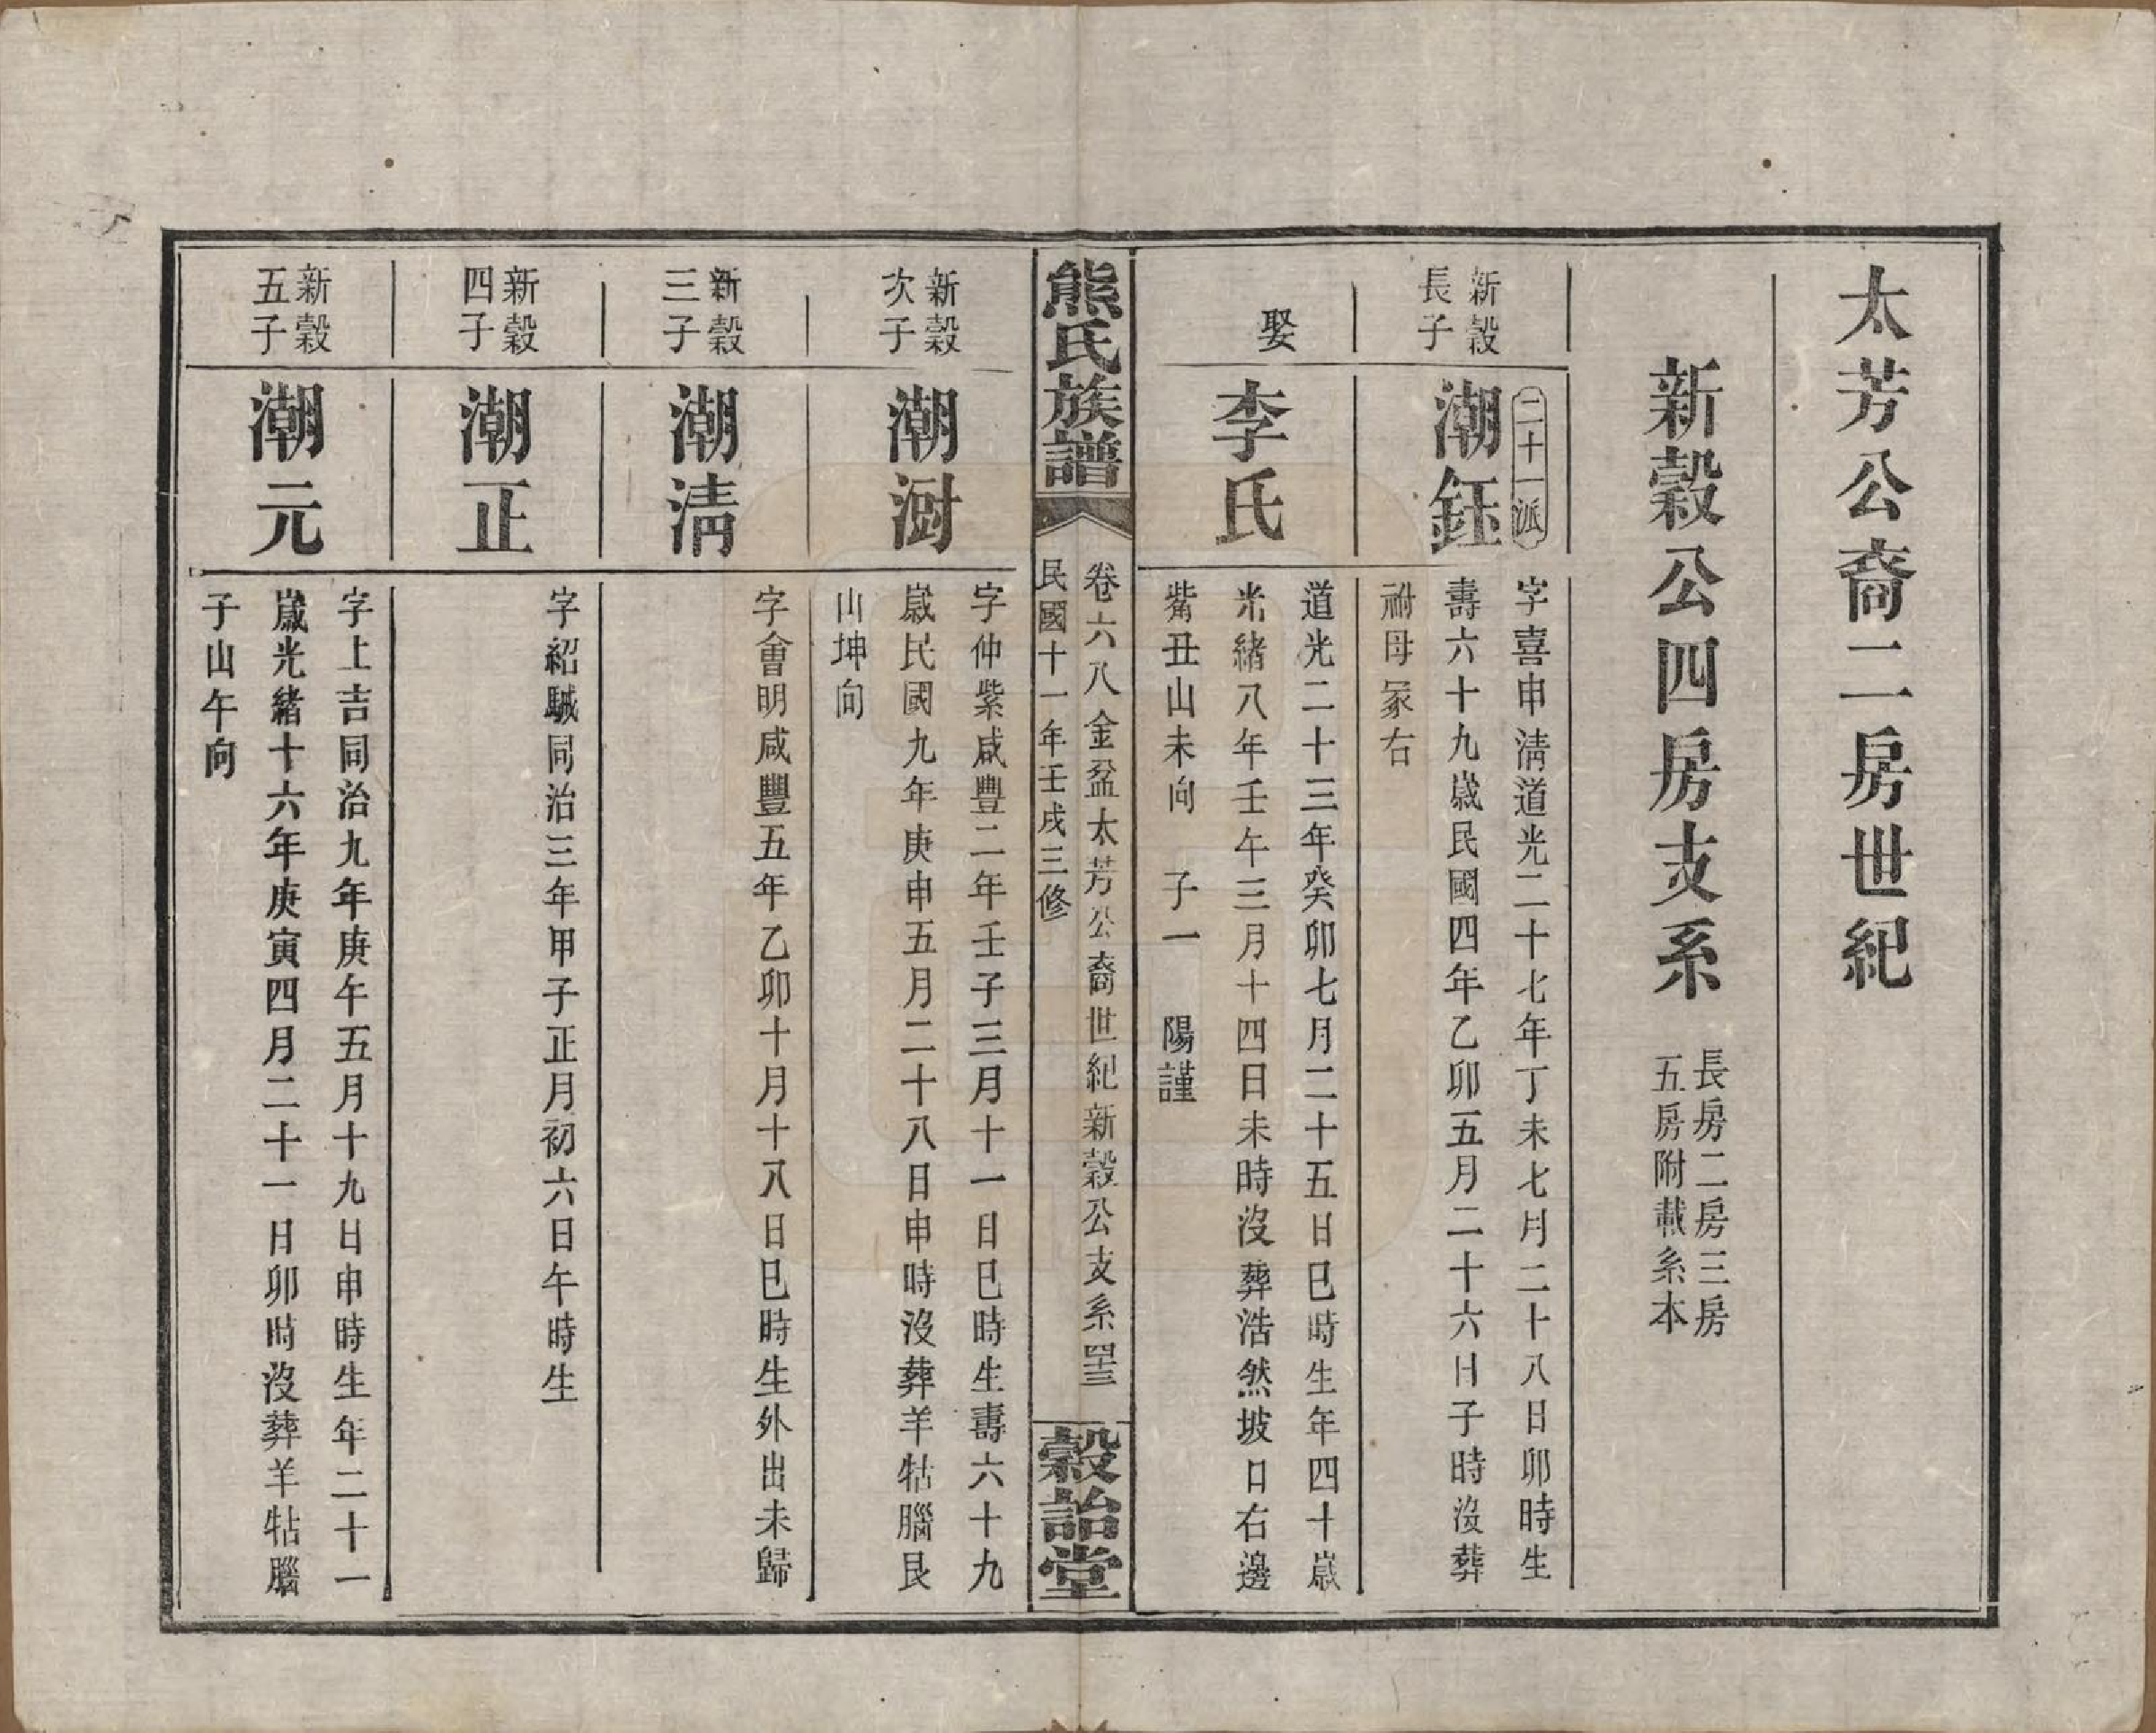 太芳公裔二房世紀
新穀公四房支系
長房二房三房
五房附載系本
新穀
長子
二十一派
潮鈺
字喜申淸道光二十七年丁未七月二十八日卯時生
壽六十九歲民國四年乙卯五月二十六日子時沒葬
祔母冢右
娶
李氏
道光二十三年癸卯七月二十五日巳時生年四十歲
光緒八年壬午三月十四日未時沒葬浩然坡口右邊
觜丑山未向 子一 陽謹
熊氏族譜
卷六八金盆太芳公裔世紀新穀公支系 四十三
民國十一年壬戌三修
穀詒堂
新穀
次子
潮澍
字仲紫咸豐二年壬子三月十一日巳時生壽六十九
歲民國九年庚申五月二十八日申時沒葬羊牯腦艮
山坤向
新穀
三子
潮淸
字會明咸豐五年乙卯十月十八日巳時生外出未歸
新穀
四子
潮正
字紹駥同治三年甲子正月初六日午時生
新穀
五子
潮元
字上吉同治九年庚午五月十九日申時生年二十一
歲光緒十六年庚寅四月二十一日卯時沒葬羊牯腦
子山午向